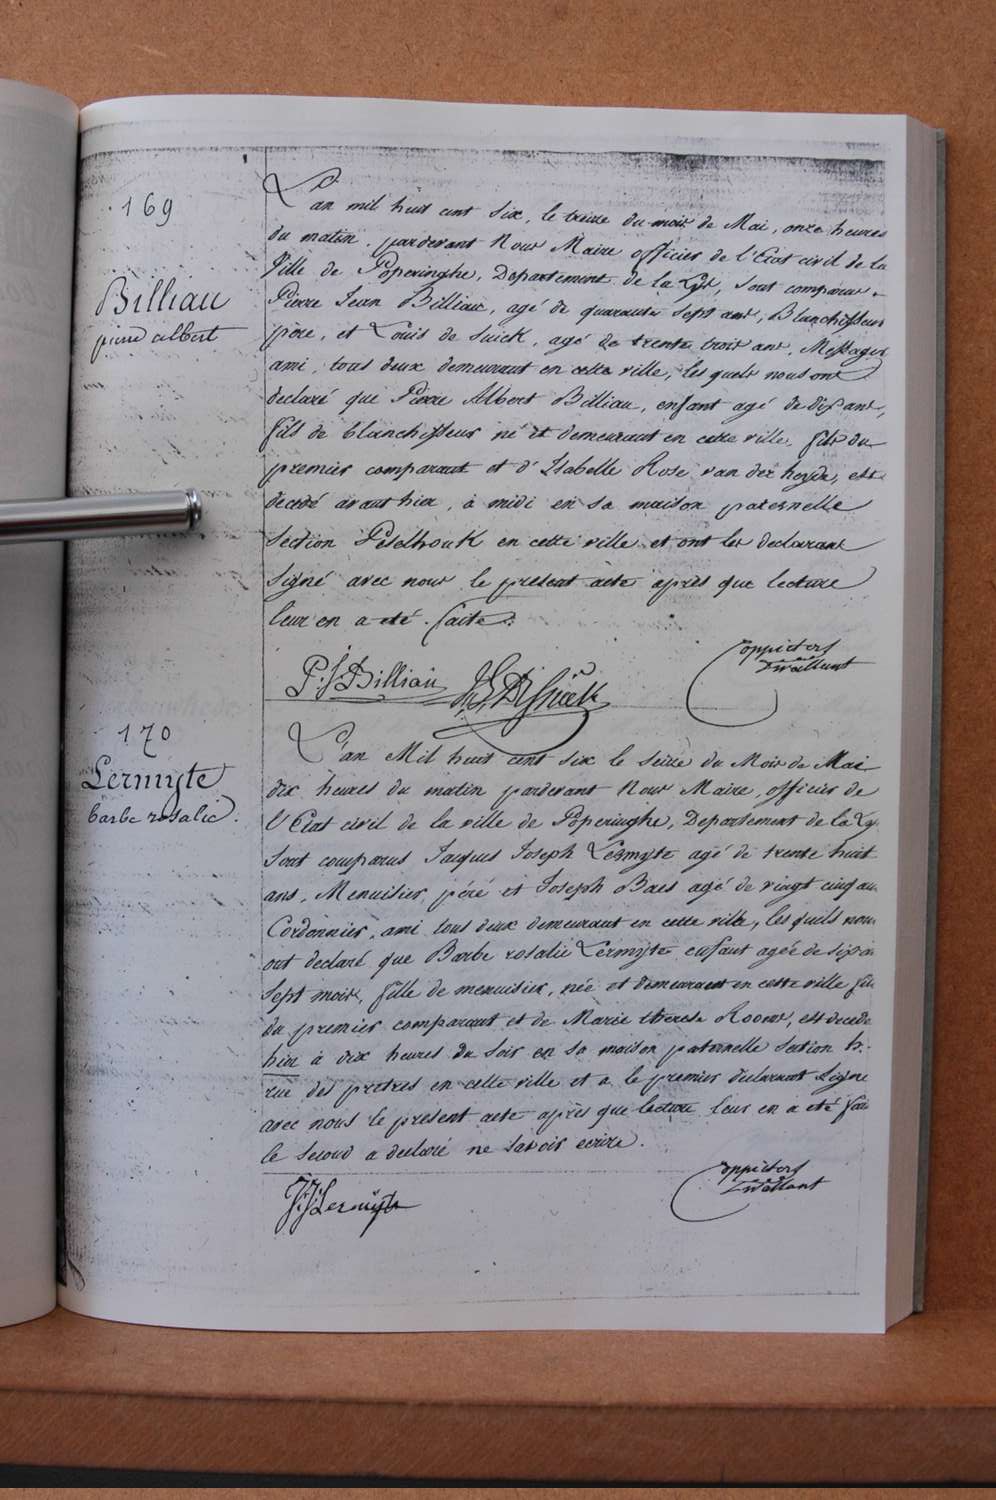 169
Billiau
pierre albert
L'an mil huit cent six, le treize du mois de Mai, onze heures
du matin, pardevant Nous Maire officier de l'Etat civil de la
Ville de Poperinghe, Departement de la Lys, sont comparus
Pierre Jean Billiau, agé de quarante sept ans, Blanchisseur
pére, et Louis de Suick, agé de trente trois ans, Messager
ami, tous deux demeurant en cette ville, les quels nous ont
declaré que Pierre Albert Billiau, enfant agé de dix ans,
fils de blanchisseur né et demeurant en cette ville, fils du
premier comparant et d'Isabelle Rose van der heyde, est
decedé avant hier, à midi en sa maison paternelle
section Peselhouk en cette ville et ont les declarans
signé avec nous le present acte après que lecture
leur en a eté faite.
P:J:Billiau
170
Lermyte
barbe rosalie.
L'an Mil huit cent six le seize du Mois de Mai
dix heures du matin pardevant Nous Maire, officier de
l'Etat civil de la ville de Poperinghe, Departement de la Lys
sont comparus Jacques Joseph Lermyte agé de trente huit
ans, Menuisier, péré et Joseph Baes agé de vingt cinq ans
Cordonnier, ami tous deux demeurant en cette ville, les quils nous
ont declaré que Barbe rosalie Lermyte enfant agée de six ans
sept mois, fille de menuisier, née et demeurant en cette ville fille
du premier comparant et de Marie therese Room, est decede
hier à dix heures du soir en sa maison paternelle section b.
rue des pretres en cette ville et a le premier declarant signé
avec nous le present acte après que lecture leur en a eté fai
le second a declaré ne savoir ecrire.
J:J:Lermyte